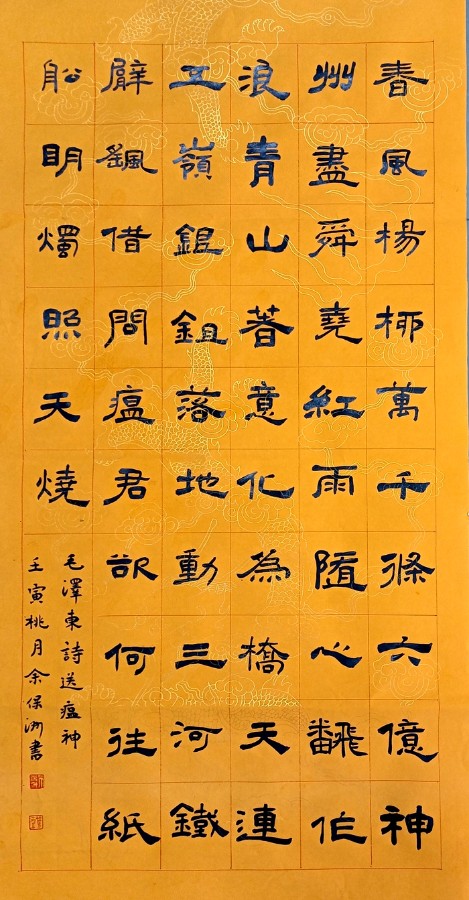 春風楊柳萬千條六億神
州盡舜堯紅雨隨心飜作
浪青山著意化為橋天連
五嶺銀鉏落地動三河鐵
臂颻借問瘟君欲何往紙
船明燭照天燒
毛澤東詩送瘟神
壬寅桃月余保洲書